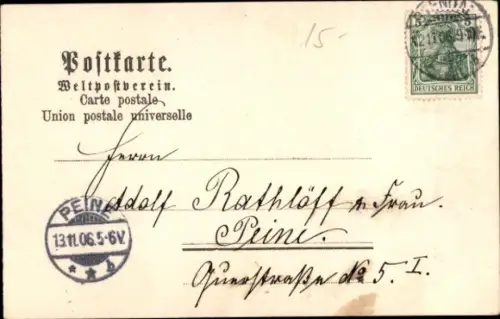 15-
Postkarte.
Weltpostverein.
Carte postale
Union postale universelle
5
DEUTSCHES REICH
Herrn
Adolf Rathlöff u. Frau.
Peine.
Querstraße No 5. I.
PEINE
13.11.06.5-6V.
* * b